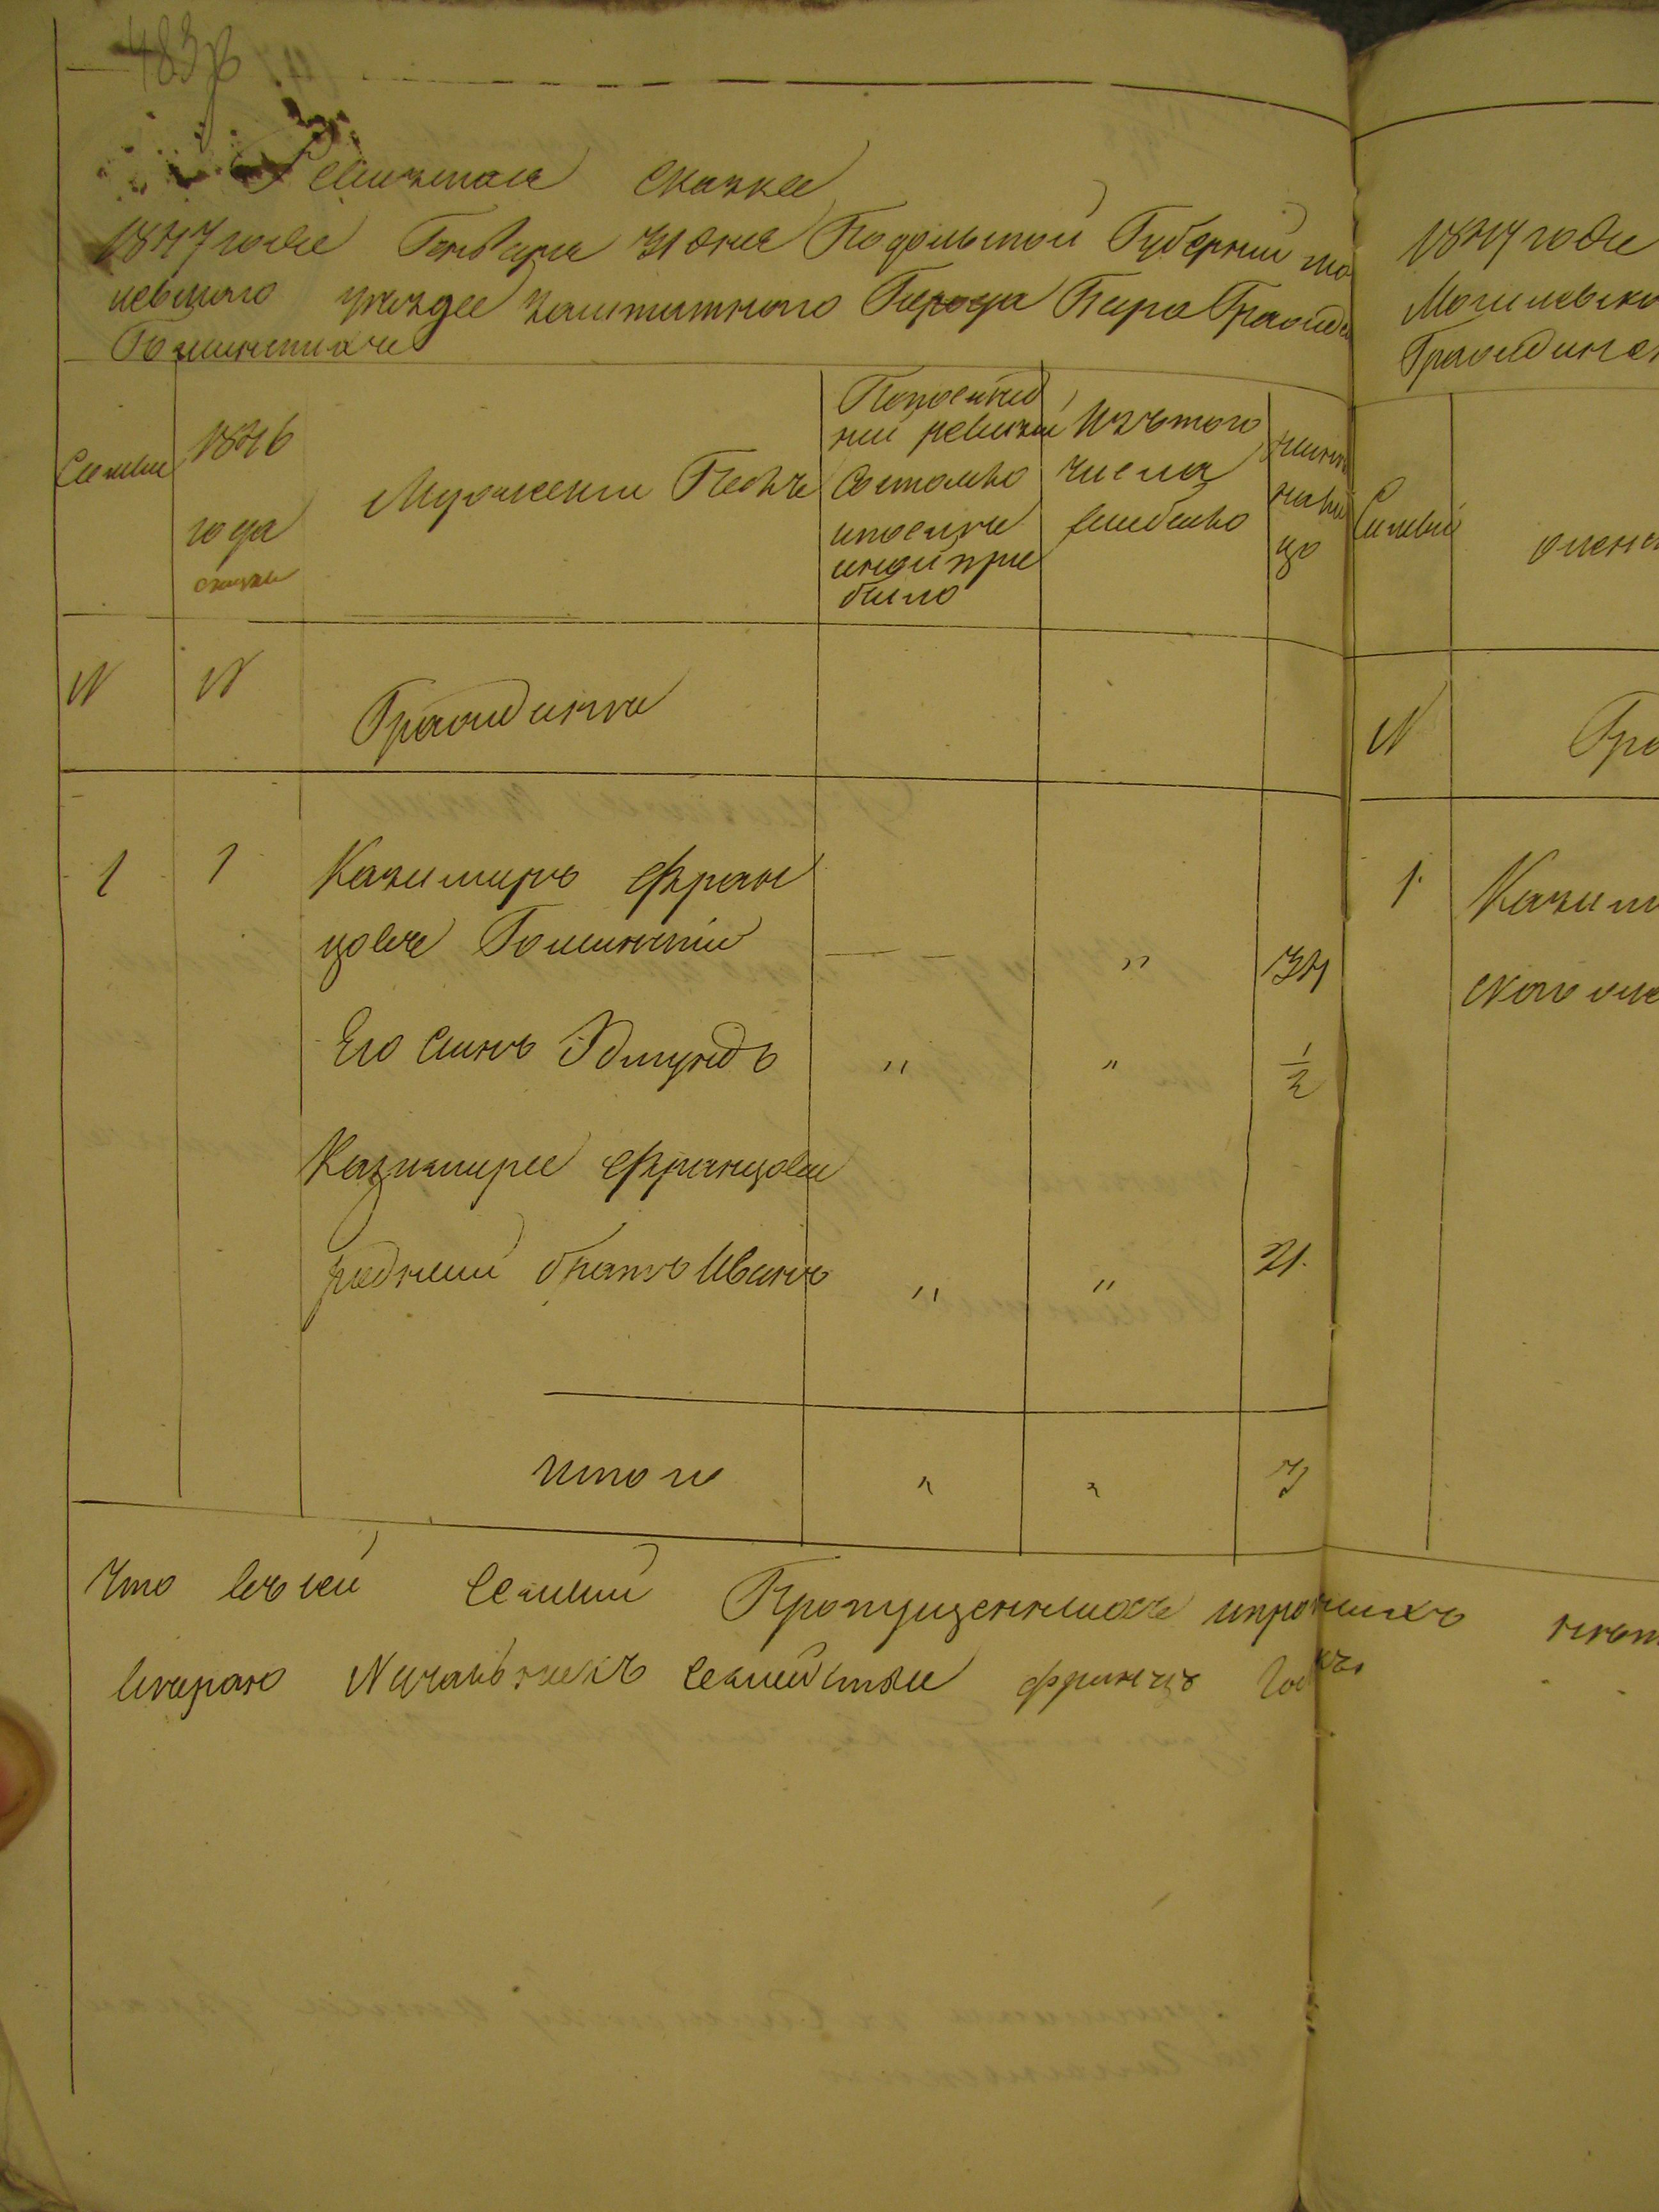 483
Ревизская сказка
1847 года Генваря 31 дня Подольской Губернии Мо
илевского уезда заштатного Города Бара Гражда
Семьи
1846
года
сказки
Мужеский Полъ
По последней
ней ревизии
Состояло
и после
оной при
было
Изъ того
числа
выбыло
Ныне
на ли
цо
N
N
Граждане
1
1
Казимиръ Фран
цовъ
"
34
Его Сынъ Эдмундъ
"
"
1/2
Казимира Францова
родный братъ Иванъ
"
"
21.
Итого
"
"
3
Что въ сей Семьи Пропущенныхъ и прописныхъ нет
Францъ
1847 года
Могилевско
Гражданск
Семьи
женс
N
Гра
1.
Казим
ского